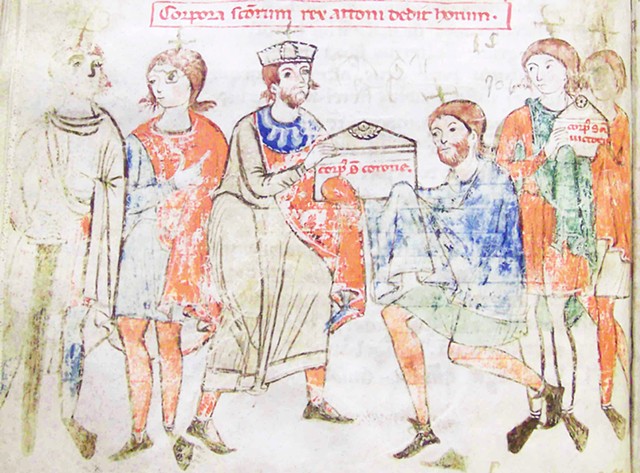 Corpora sc̄orum rex attoni dedit horum·
corp' s̄ corone.
corp' s̄
uictor